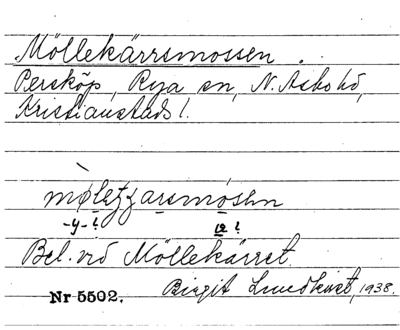 Möllekärrsmossen.
Perskôp, Rya sn, N. Asbo hd,
Kristianstads l.
Bel. vid Möllekärret.
Birgit Lundkvist, 1938.
Nr 5502.